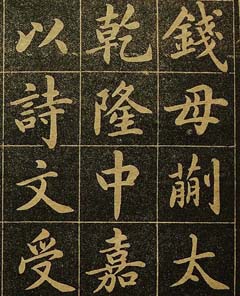 錢母蒯太
乾隆中嘉
以詩文受